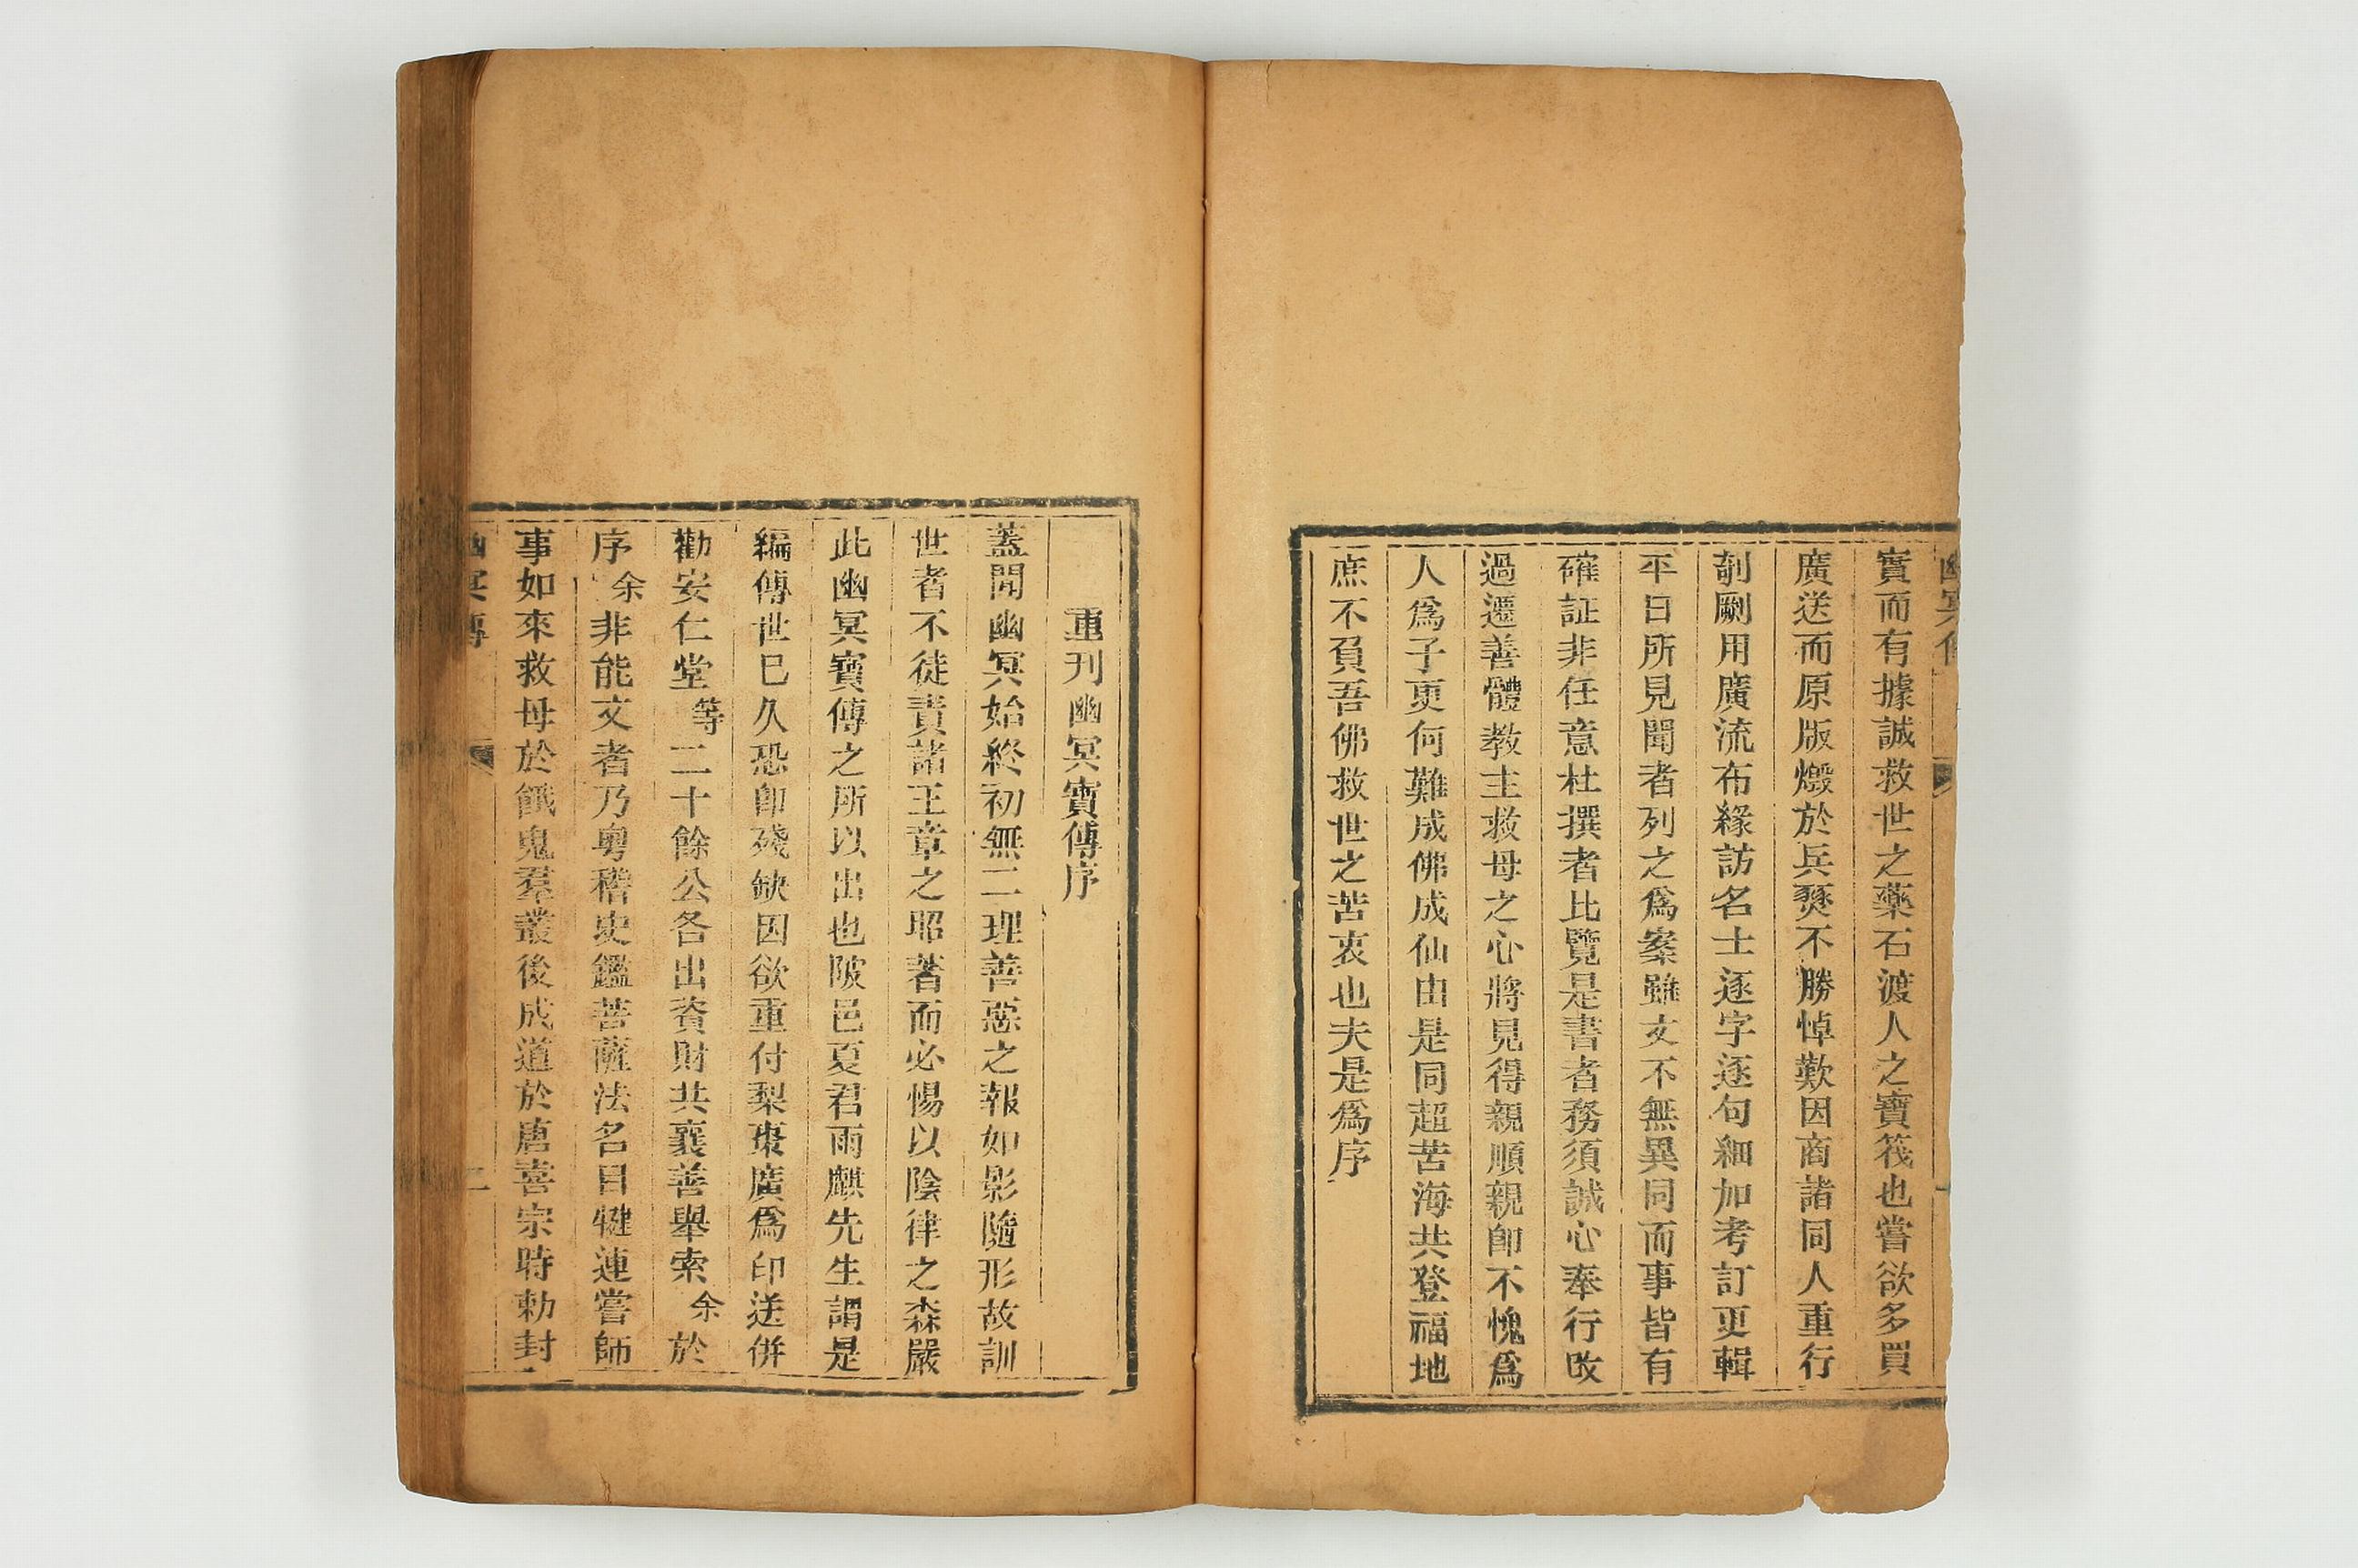 實而有據誠救世之藥石渡人之寶筏也嘗欲多買
廣送而原版燬於兵燹不勝悼歎因商諸同人重行
剞劂用廣流布緣訪名士逐字逐句細加考訂更輯
平日所見聞者列之爲案雖文不無異同而事皆有
確証非任意杜撰者比覽是書者務須誠心奉行改
過遷善體教主救母之心將見得親順親卽不愧爲
人爲子更何難成佛成仙由是同超苦海共登福地
庶不負吾佛救世之苦衷也夫是爲序
重刊幽冥寶傳序
蓋聞幽冥始終初無二理善惡之報如影隨形故訓
世者不徒責諸王章之昭著而必惕以陰律之森嚴
此幽冥寶傳之所以出也陂邑夏君雨麒先生謂是
編傳世已久恐卽殘缺因欲重付梨棗廣爲印送併
勸安仁堂等二十餘公各出資財共襄善舉索余於
序余非能文者乃粵稽史鑑菩薩法名目犍連嘗師
事如來救母於餓鬼羣叢後成道於唐憙宗時勅封
幽冥傳
二